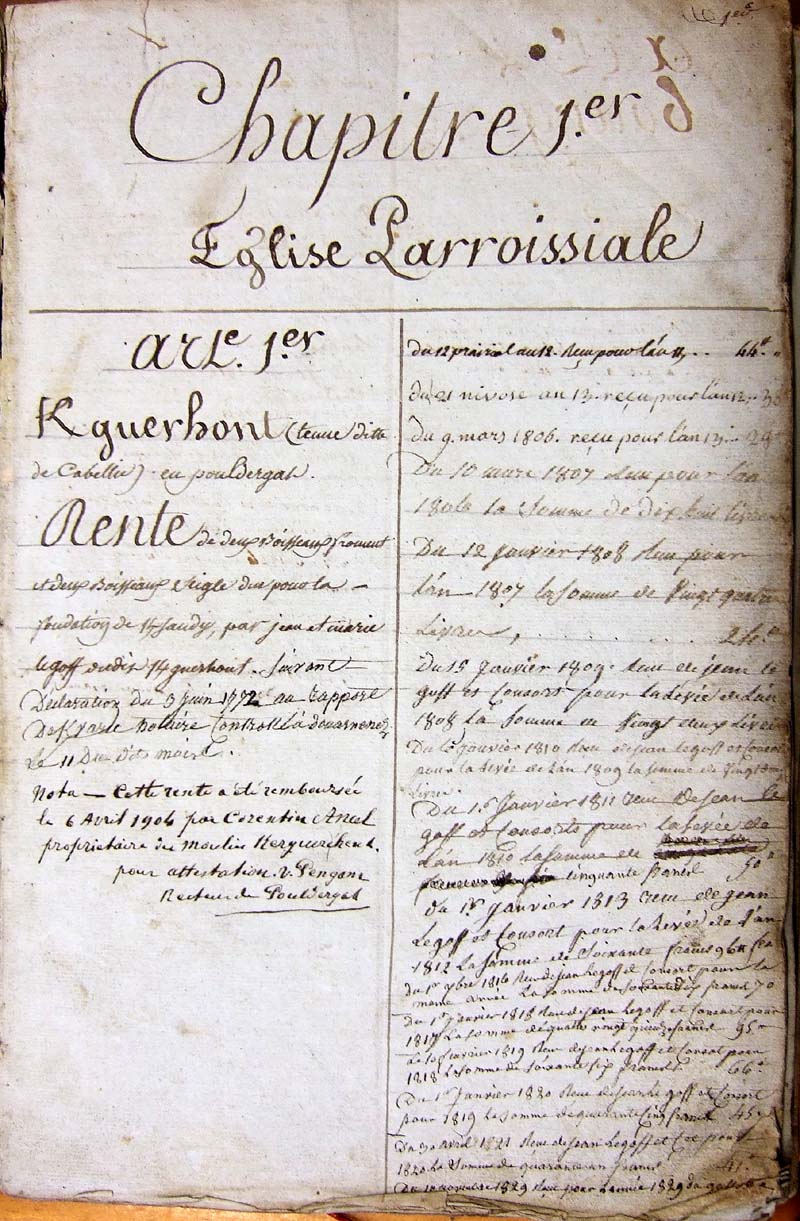 Chapitre 1.er
Eglise Parroissiale
arte. 1.er
Kguerhont (tenue ditte
de Cabellic) en pouldergat.
Rente de deux Boisseaux froment
et deux Boisseaux Seigle due pour la
fondation de, par jean et marie
legoff dudit guerhont. Suivant
Déclaration du 3 juin 1772 au rapport
De notaire Controllé à douarnenez
Le 11 Du Dit mois.
Nota — Cette rente a été remboursée
le 6 Avril 1904 par Corentin Ansel
propriétaire du moulin Kerguerhent.
pour attestation. V. Pengam
Recteur de Pouldergat
du 12 prairial an 12. Reçu pour l'an 11 .. 44
du 21 nivose an 13. reçu pour l'an 12
du 9. mars 1806. reçu pour l'an 13.
Du 10 mars 1807 Reçu pour l'an
1806 la Somme de dix huit livres
Du 12 Janvier 1808 Reçu pour
l'an 1807 la Somme de Vingt quatre
Livres, 24
Du 15 Janvier 1809 Reçu de jean le
goff et Consort pour la Levée de L'an
1808 La Somme de Vingt deux Livres
Du Janvier 1810 Reçu de jean legoff et Consort
pour la Levée de L'an 1809 la Somme de
Livres
Du 1.er Janvier 1811 reçu De jean le
goff et Consorts pour la Levée de
L'an 1810 la Somme de
cinquante francs 50
du 1.er Janvier 1813 reçu de jean
legoff et Consort pour la Levée de l'an
1812 La Somme de Soixante francs
du 1er 1816 Reçu de jean legoff et Consort pour la
meme année La Somme de Soixante dix francs 70
Du 1er janvier 1818 Reçu de jean Legoff et Consort pour
1817 La Somme de quatre vingt quinze francs 95
Le 10 fevrier 1819 Reçu de jean Legoff et Consort pour
1818 La Somme de Soixante Six francs 66
Du 1er Janvier 1820 Reçu de jean le goff et Consort
pour 1819 Le Somme de quarante Cinq francs 45
Du 30 avril 1821 Reçu de jean legoff et pour
1820 La Somme de quarante un francs 41
Du 10 novembre 1829 Reçu pour l'année 1829 du goff